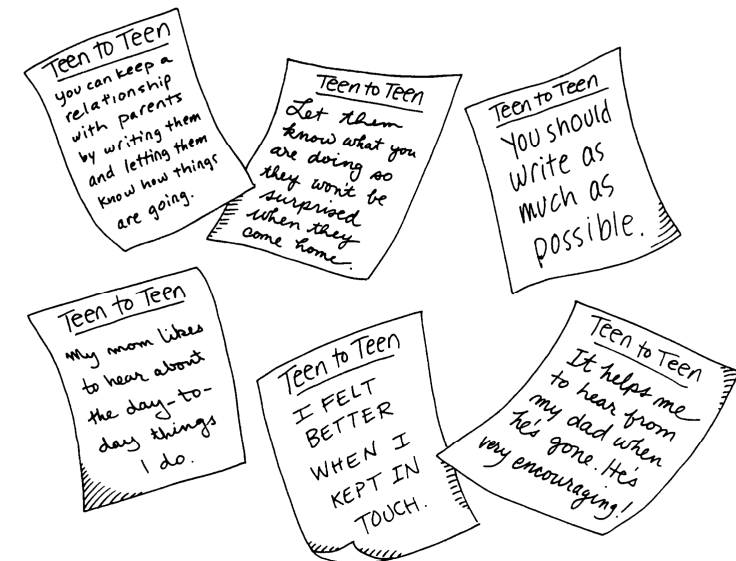 Teen to Teen
you can keep a
relationship
with parents
by writing them
and letting them
know how things
are going.
Teen to Teen
Let them
know what you
are doing so
they won't be
surprised
when they
come home.
Teen to Teen
You should
write as
much as
possible.
Teen to Teen
My mom likes
to hear about
the day-to-
day things
I do.
Teen to Teen
I FELT
BETTER
WHEN I
KEPT IN
TOUCH.
Teen to Teen
It helps me
to hear from
my dad when
he's gone. He's
very encouraging!